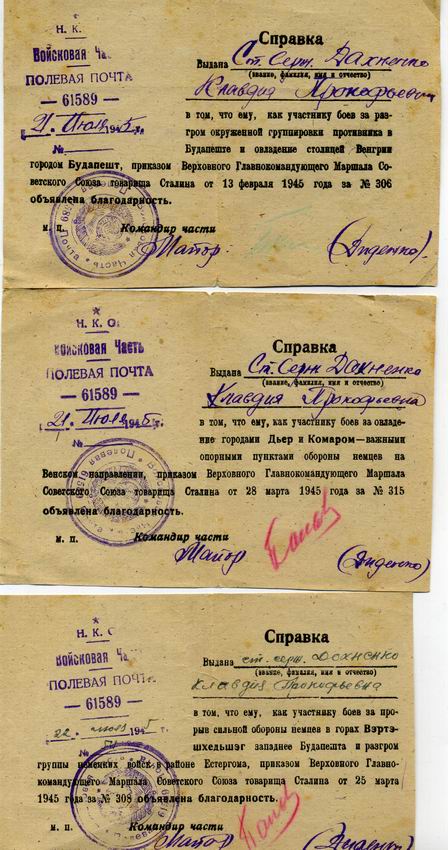 Н. К.
Войсковая Часть
ПОЛЕВАЯ ПОЧТА
— 61589 —
21 Июля 1945 г.
№
Справка
Выдана Ст. Серж. Дахненко
(звание, фамилия, имя и отчество)
Клавдия Прокофьевич
в том, что ему, как участнику боев за раз-
гром окруженной группировки противника в
Будапеште и овладение столицей Венгрии
городом Будапешт, приказом Верховного Главнокомандующего Маршала Со-
ветского Союза товарища Сталина от 13 февраля 1945 года за № 306
объявлена благодарность.
м. п. Командир части
Майор (Диденко).
Н. К. О.
Войсковая Часть
ПОЛЕВАЯ ПОЧТА
— 61589 —
21 Июля 1945 г.
№
Справка
Выдана Ст. Серж Дахненко
(звание, фамилия, имя и отчество)
Клавдия Прокофьевна
в том, что ему, как участнику боев за овладе-
ние городами Дьер и Комаром—важными
опорными пунктами обороны немцев на
Венском направлении, приказом Верховного Главнокомандующего Маршала
Советского Союза товарища Сталина от 28 марта 1945 года за № 315
объявлена благодарность.
м. п. Командир части
Майор (Диденко)
Н. К. О
Войсковая Ча
ПОЛЕВАЯ ПОЧТА
— 61589 —
22 июля 1945 г.
№
Справка
Выдана ст. серж. Дохненко
(звание, фамилия, имя и отчество)
Клавдия Прокофьевна
в том, что ему, как участнику боев за про-
рыв сильной обороны немцев в горах Вэртэ-
шхедьшэг западнее Будапешта и разгром
группы немецких войск в районе Естергома, приказом Верховного Главно-
командующего Маршала Советского Союза товарища Сталина от 25 марта
1945 года за № 308 объявлена благодарность.
м. п. Командир части
Майор (Диденко